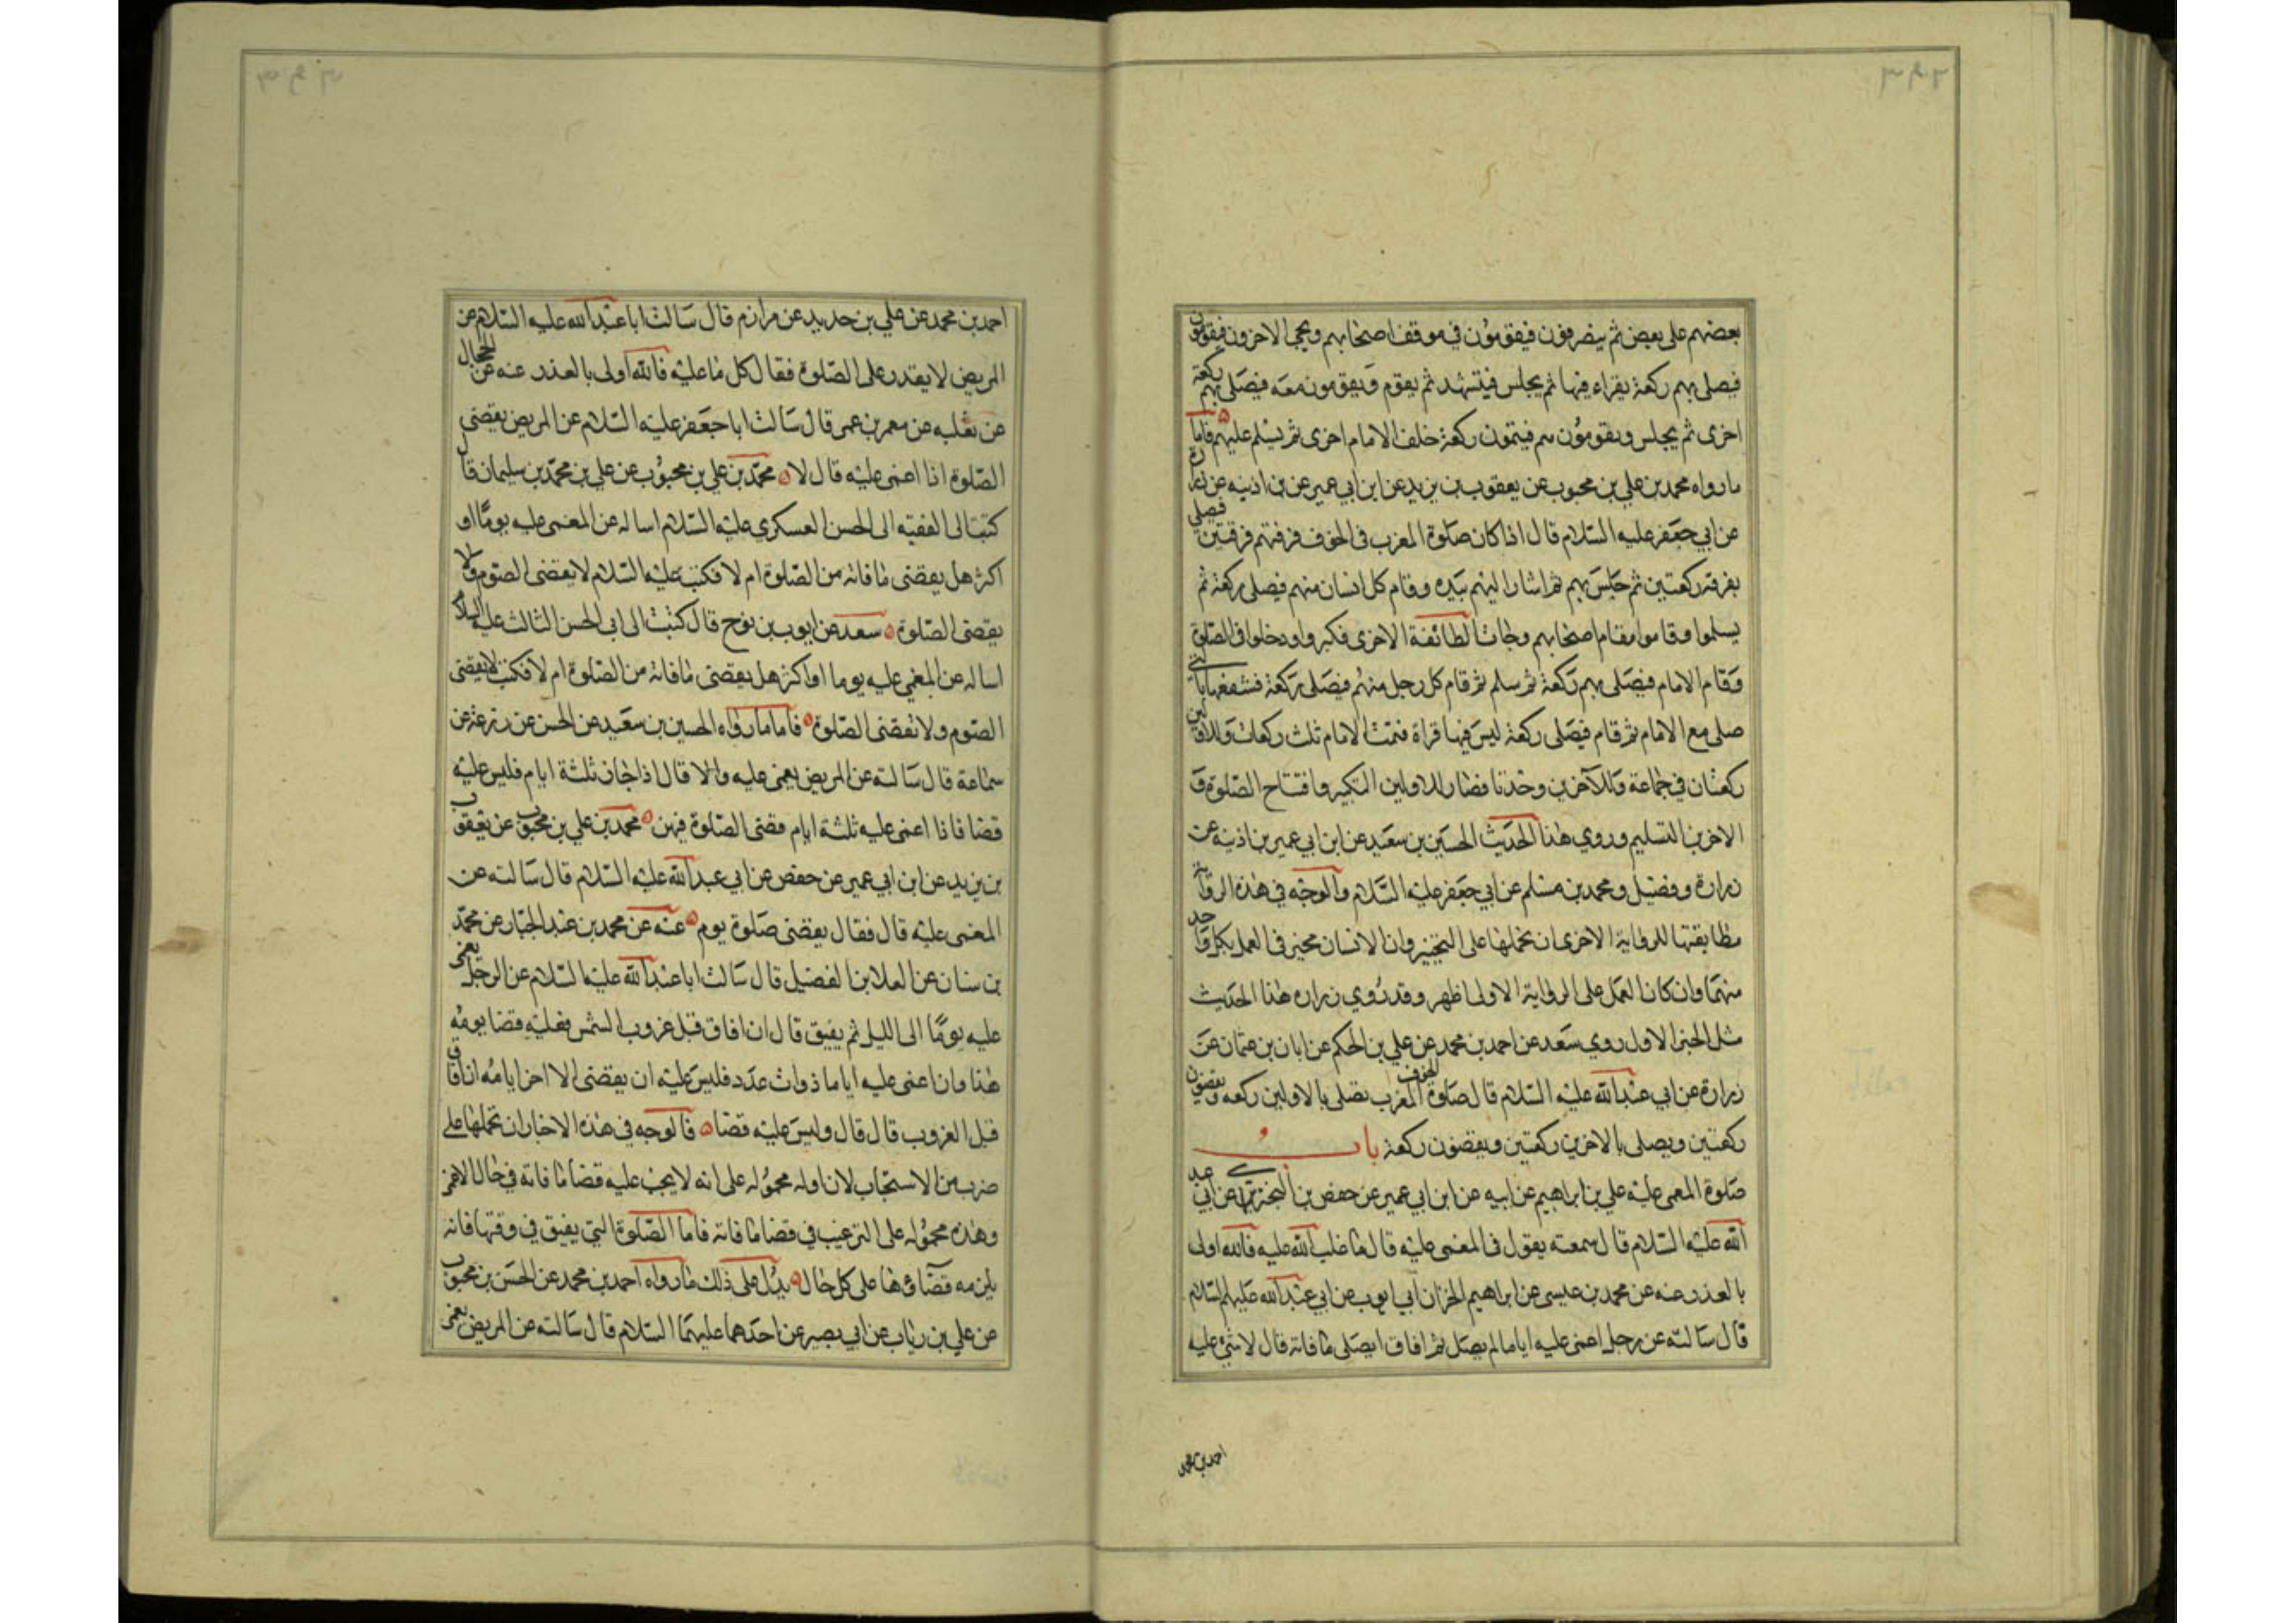 بعضهم على بعض ثم ينصرفون فيقومون في موقف اصحابهم ويجئ الاخرون فيقومون
فيصلي بهم ركعة يقراء فيها ثم يجلس فيتشهد ثم يقوم ويقومون معه فيصلي بهم ركعة
اخرى ثم يجلس ويقومون هم فيتمون ركعة خلف الامام اخرى ثم يسلم عليهم فاما
ما رواه محمد بن علي بن محبوب عن يعقوب بن يزيد عن ابن ابي عمير عن بن اذينه عن زرارة
عن ابي جعفر عليه السلام قال اذا كان صلوة المغرب في الخوف فرقهم فرقتين فيصلي
بفرقة ركعتين ثم جلس بهم ثم اشار اليهم بيده وقام كل انسان منهم فيصلي ركعة ثم
يسلموا وقاموا مقام اصحابهم وجات الطائفة الاخرى فكبروا ودخلوا في الصلوة
وقام الامام فيصلى بهم ركعة ثم سلم ثم قام كل رجل منهم فصلى ركعة فشفعها بالتي
صلى مع الامام ثم قام فيصلى ركعة ليس فيها قراة فتمت الامام ثلث ركعات وللاولين
ركعتان في جماعة وللآخرين وحدتا فصار للاولين التكبير وافتتاح الصلوة و
الاخرين التسليم وروي هذا الحديث الحسين بن سعيد عن ابن ابي عمير بن اذينه عن
زرارة وفضيل ومحمد بن مسلم عن ابي جعفر عليه السلام والوجه في هذه الرواية
مطابقتها للرواية الاخرى ان نحملها على التخيير وان الانسان مخير في العمل بكل واحد
منهما وان كان العمل على الرواية الاولى اظهر وقد روي زراره هذا الحديث
مثل الخبر الاول روي سعد عن احمد بن محمد عن علي بن الحكم عن ابان بن عثمان عن
زرارة عن ابي عبد الله عليه السلام قال صلوة الخوف المغرب يصلي بالاولين ركعه ويقضون
ركعتين ويصلى بالاخرين ركعتين ويقضون ركعة باب
صلوة المغمى عليه علي بن ابراهيم عن ابيه عن ابن ابي عمير عن حفص بن البختري عن ابي عبد
الله عليه السلام قال سمعته يقول في المغمى عليه قال ما غلب الله عليه فالله اولى
بالعذر وعنه عن محمد بن عيسى عن ابراهيم الخزاز ابي ايوب عن ابي عبد الله عليه السلام
قال سالته عن رجل اغمى عليه اياما لم يصل ثم افاق ايصلى ما فاته قال لا شئ عليه
احمد بن محمد
احمد بن محمد عن علي بن حديد عن مرازم قال سالت ابا عبد الله عليه السلام عن
المريض لا يقدر على الصلوة فقال كل ما عليه فالله اولى بالعذر عنه عن الحجال
عن ثعلبه عن معمر بن عمر قال سالت ابا جعفر عليه السلام عن المريض يقضي
الصلوة اذا اغمى عليه قال لا محمد بن علي بن محبوب عن علي بن محمد بن سليمان قال
كتبت الى الفقيه الى الحسن العسكري عليه السلام اساله عن المغمى عليه يوما او
اكثر هل يقضى ما فاته من الصلوة ام لا فكتب عليه السلام لا يقضى الصوم ولا
يقضى الصلوة سعد عن ايوب بن نوح قال كتبت الى ابي الحسن الثالث عليه السلام
اساله عن المغمي عليه يوما او اكثر هل يقضى ما فاته من الصلوة ام لا فكتب لا يقضى
الصوم ولا تقضى الصلوة فاما ما رواه الحسين بن سعيد عن الحسن عن زرعة عن
سماعة قال سالته عن المريض يغمى عليه والا قال اذا جاز ثلثة ايام فليس عليه
قضا فاذا اغمى عليه ثلثة ايام قضى الصلوة فيهن محمد بن علي بن محبوب عن يعقوب
بن يزيد عن ابن ابي عمير عن حفص عن ابي عبد الله عليه السلام قال سالته عن
المغمى عليه قال فقال يقضى صلوة يوم عنه عن محمد بن عبد الجبار عن محمد
بن سنان عن العلا بن الفضيل قال سالت ابا عبد الله عليه السلام عن الرجل يغمى
عليه يوما الى الليل ثم يفيق قال ان افاق قبل غروب الشمس فعليه قضا يومه
هذا وان اغمى عليه اياما ذوات عدد فليس عليه ان يقضى الا اخر ايامه ان افاق
قبل الغروب قال قال وليس عليه قضا فالوجه في هذه الاخبار ان نحملها على
ضرب من الاستحباب لان اوله محموله على انه لا يجب عليه قضا ما فاته في حال الاغمى
وهذه محموله على الترغيب في قضا ما فاته فاما الصلوة التي يفيق في وقتها فانه
يلزمه قضاؤها على كل حال يدل على ذلك ما رواه احمد بن محمد عن الحسن بن محبوب
عن علي بن رياب عن ابي بصير عن احدهما عليهما السلام قال سالته عن المريض يغمى